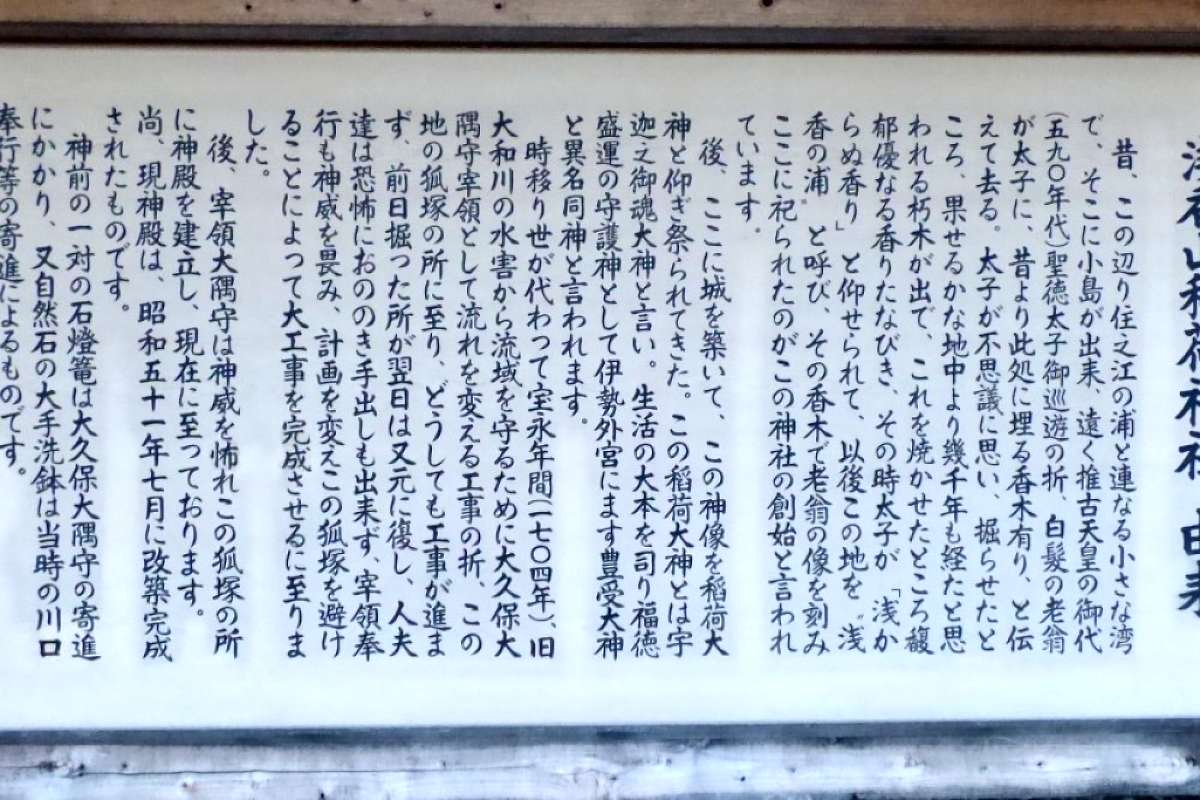 浅香山稲荷神社 由来
昔、この辺り住之江の浦と連なる小さな湾
で、そこに小島が出来、遠く推古天皇の御代
(五九〇年代)聖徳太子御巡遊の折、白髪の老翁
が太子に、昔より此処に埋る香木有り、と伝
えて去る。太子が不思議に思い、掘らせたと
ころ、果せるかな地中より幾千年も経たと思
われる朽木が出で、これを焼かせたところ馥
郁優なる香りたなびき、その時太子が「浅か
らぬ香り」と仰せられて、以後この地を〝浅
香の浦〟と呼び、その香木で老翁の像を刻み
ここに祀られたのがこの神社の創始と言われ
ています。
後、ここに城を築いて、この神像を稲荷大
神と仰ぎ祭られてきた。この稲荷大神とは宇
迦之御魂大神と言い。生活の大本を司り福徳
盛運の守護神として伊勢外宮にます豊受大神
と異名同神と言われます。
時移り世が代わって宝永年間(一七〇四年)、旧
大和川の水害から流域を守るために大久保大
隅守宰領として流れを変える工事の折、この
地の狐塚の所に至り、どうしても工事が進ま
ず、前日掘った所が翌日は又元に復し、人夫
達は恐怖におののき手出しも出来ず、宰領奉
行も神威を畏み、計画を変えこの狐塚を避け
ることによって大工事を完成させるに至りま
した。
後、宰領大隅守は神威を怖れこの狐塚の所
に神殿を建立し、現在に至っております。
尚、現神殿は、昭和五十一年七月に改築完成
されたものです。
神前の一対の石燈篭は大久保大隅守の寄進
にかかり、又自然石の大手洗鉢は当時の川口
奉行等の寄進によるものです。